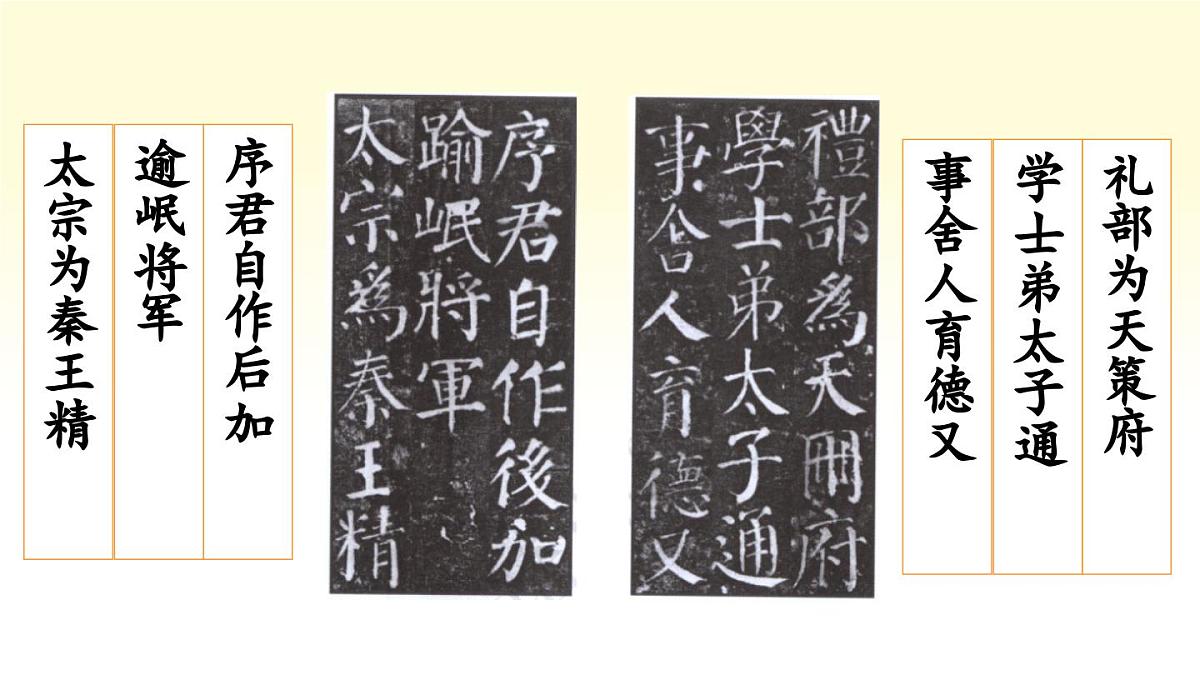 礼部为天策府
学士弟太子通
事舍人育德又
禮部爲天冊府
學士弟太子通
事舍人育德又
序君自作後加
踰岷將軍
太宗爲秦王精
序君自作后加
逾岷将军
太宗为秦王精